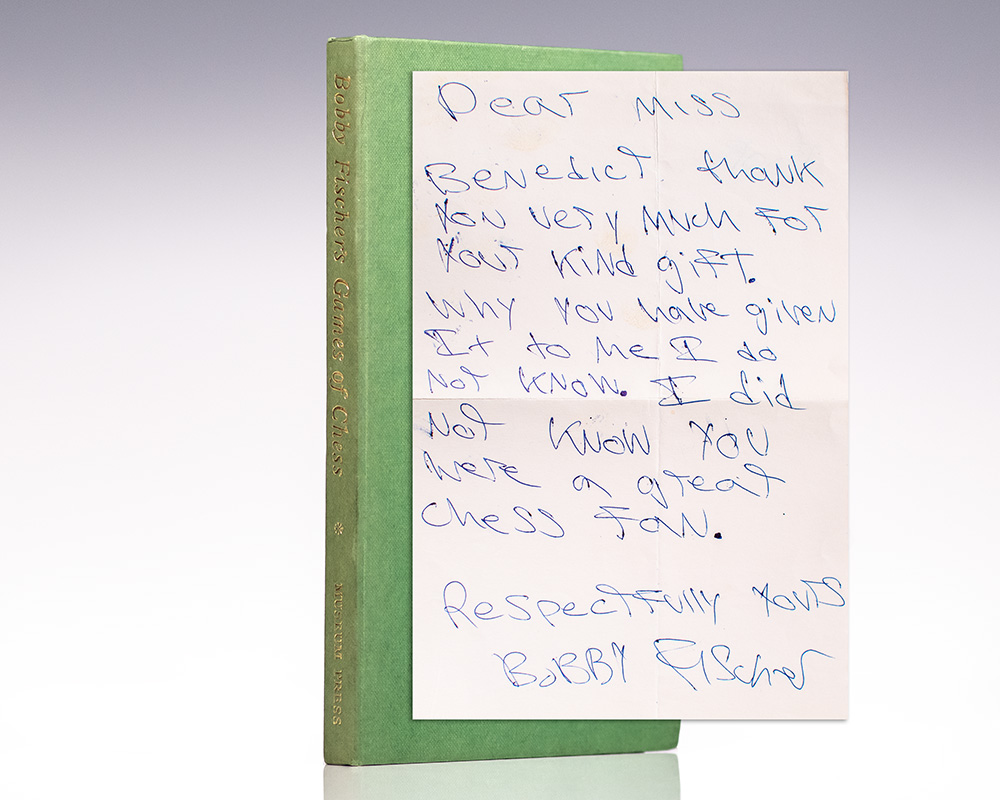 Bobby Fischer's Games of Chess * MUSEUM PRESS
Dear Miss
Benedict. thank
You very Much For
Your KiNd gift.
Why You have given
It to Me I do
Not KNow. I did
Not KNow You
Were a great
Chess FaN.
RespectFully Yours
BoBBY FIScher